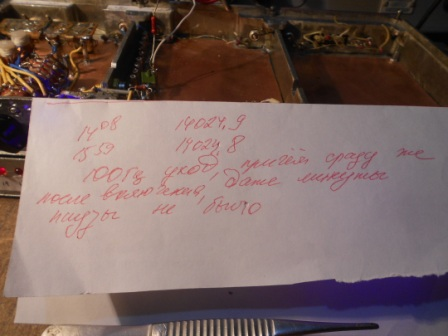 17⁰⁸ 14024,9
17⁵⁹ 14024,8
100Гц уход, причём сразу же
после включения, даже минуты
паузы не было